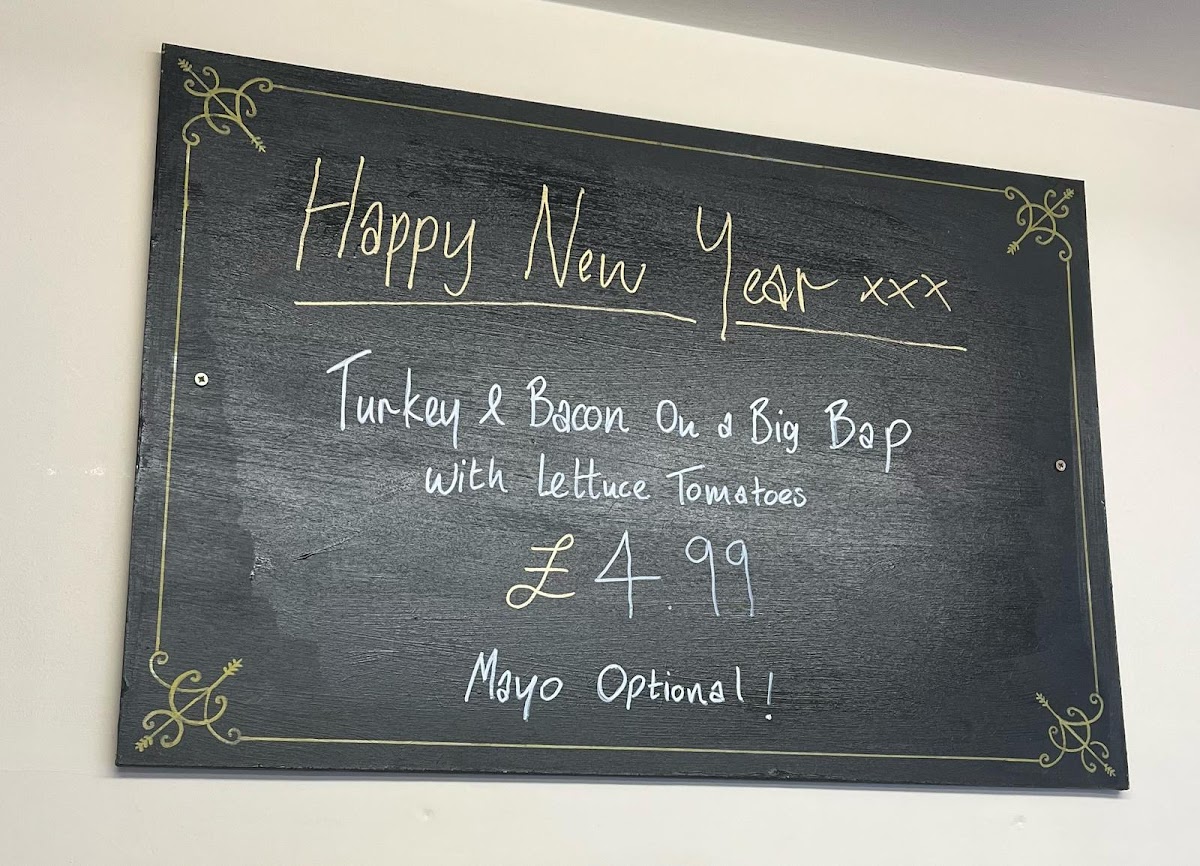 Happy New Year xxx
Turkey & Bacon On a Big Bap
with Lettuce Tomatoes
£4.99
Mayo Optional!